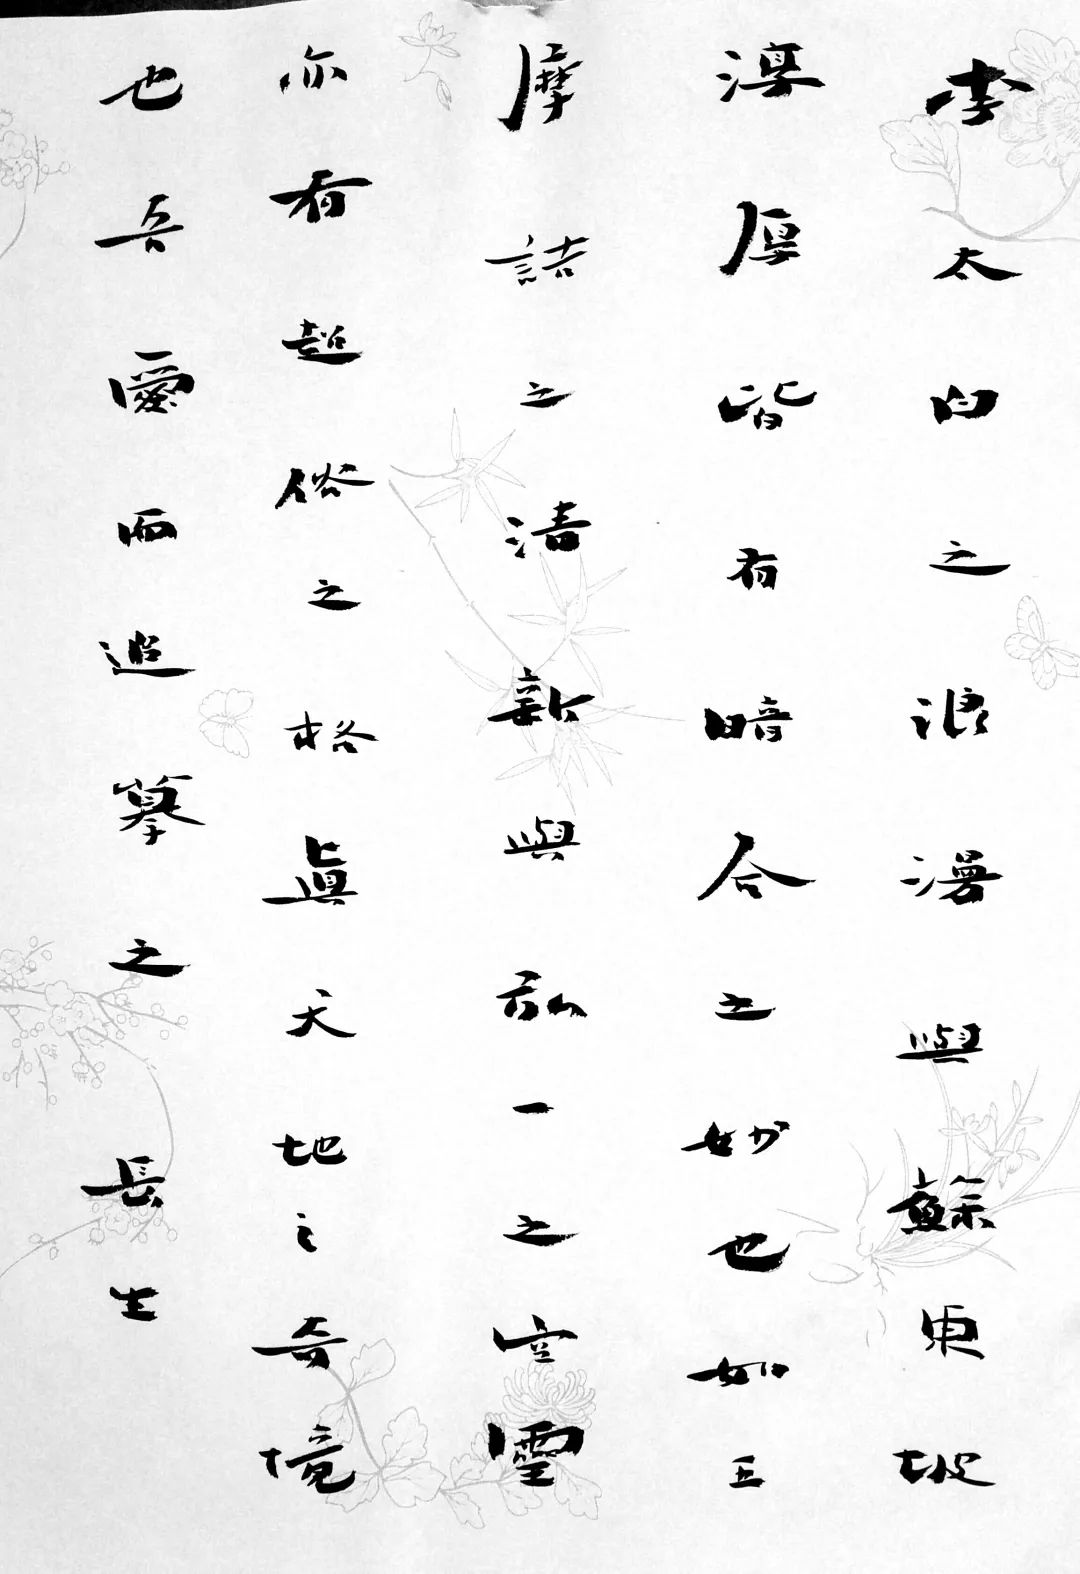 李太白之浪漫與蘇東坡
淳厚皆有暗合之妙也如王
摩詰之清新與弘一之空靈
亦有超俗之格真天地之奇境
也吾愛而追摹之 長生